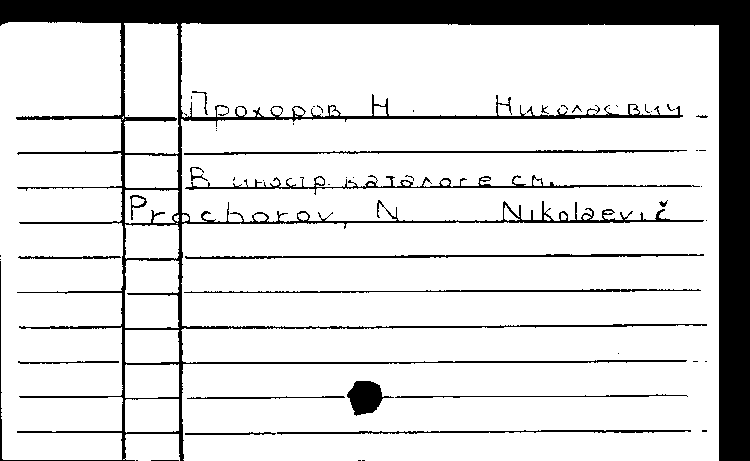 Прохоров, Н. Николаевич
В иностр. каталоге см.
Prochorov, N. Nikolaevič